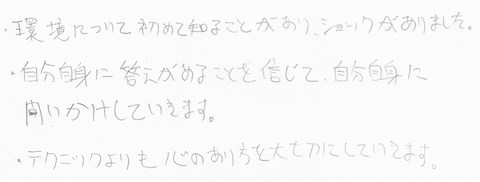 ・環境について初めて知ることがあり、ショックがありました。
・自分自身に答えがあることを信じて、自分自身に
問いかけしていきます。
・テクニックよりも心のあり方を大切にしていきます。